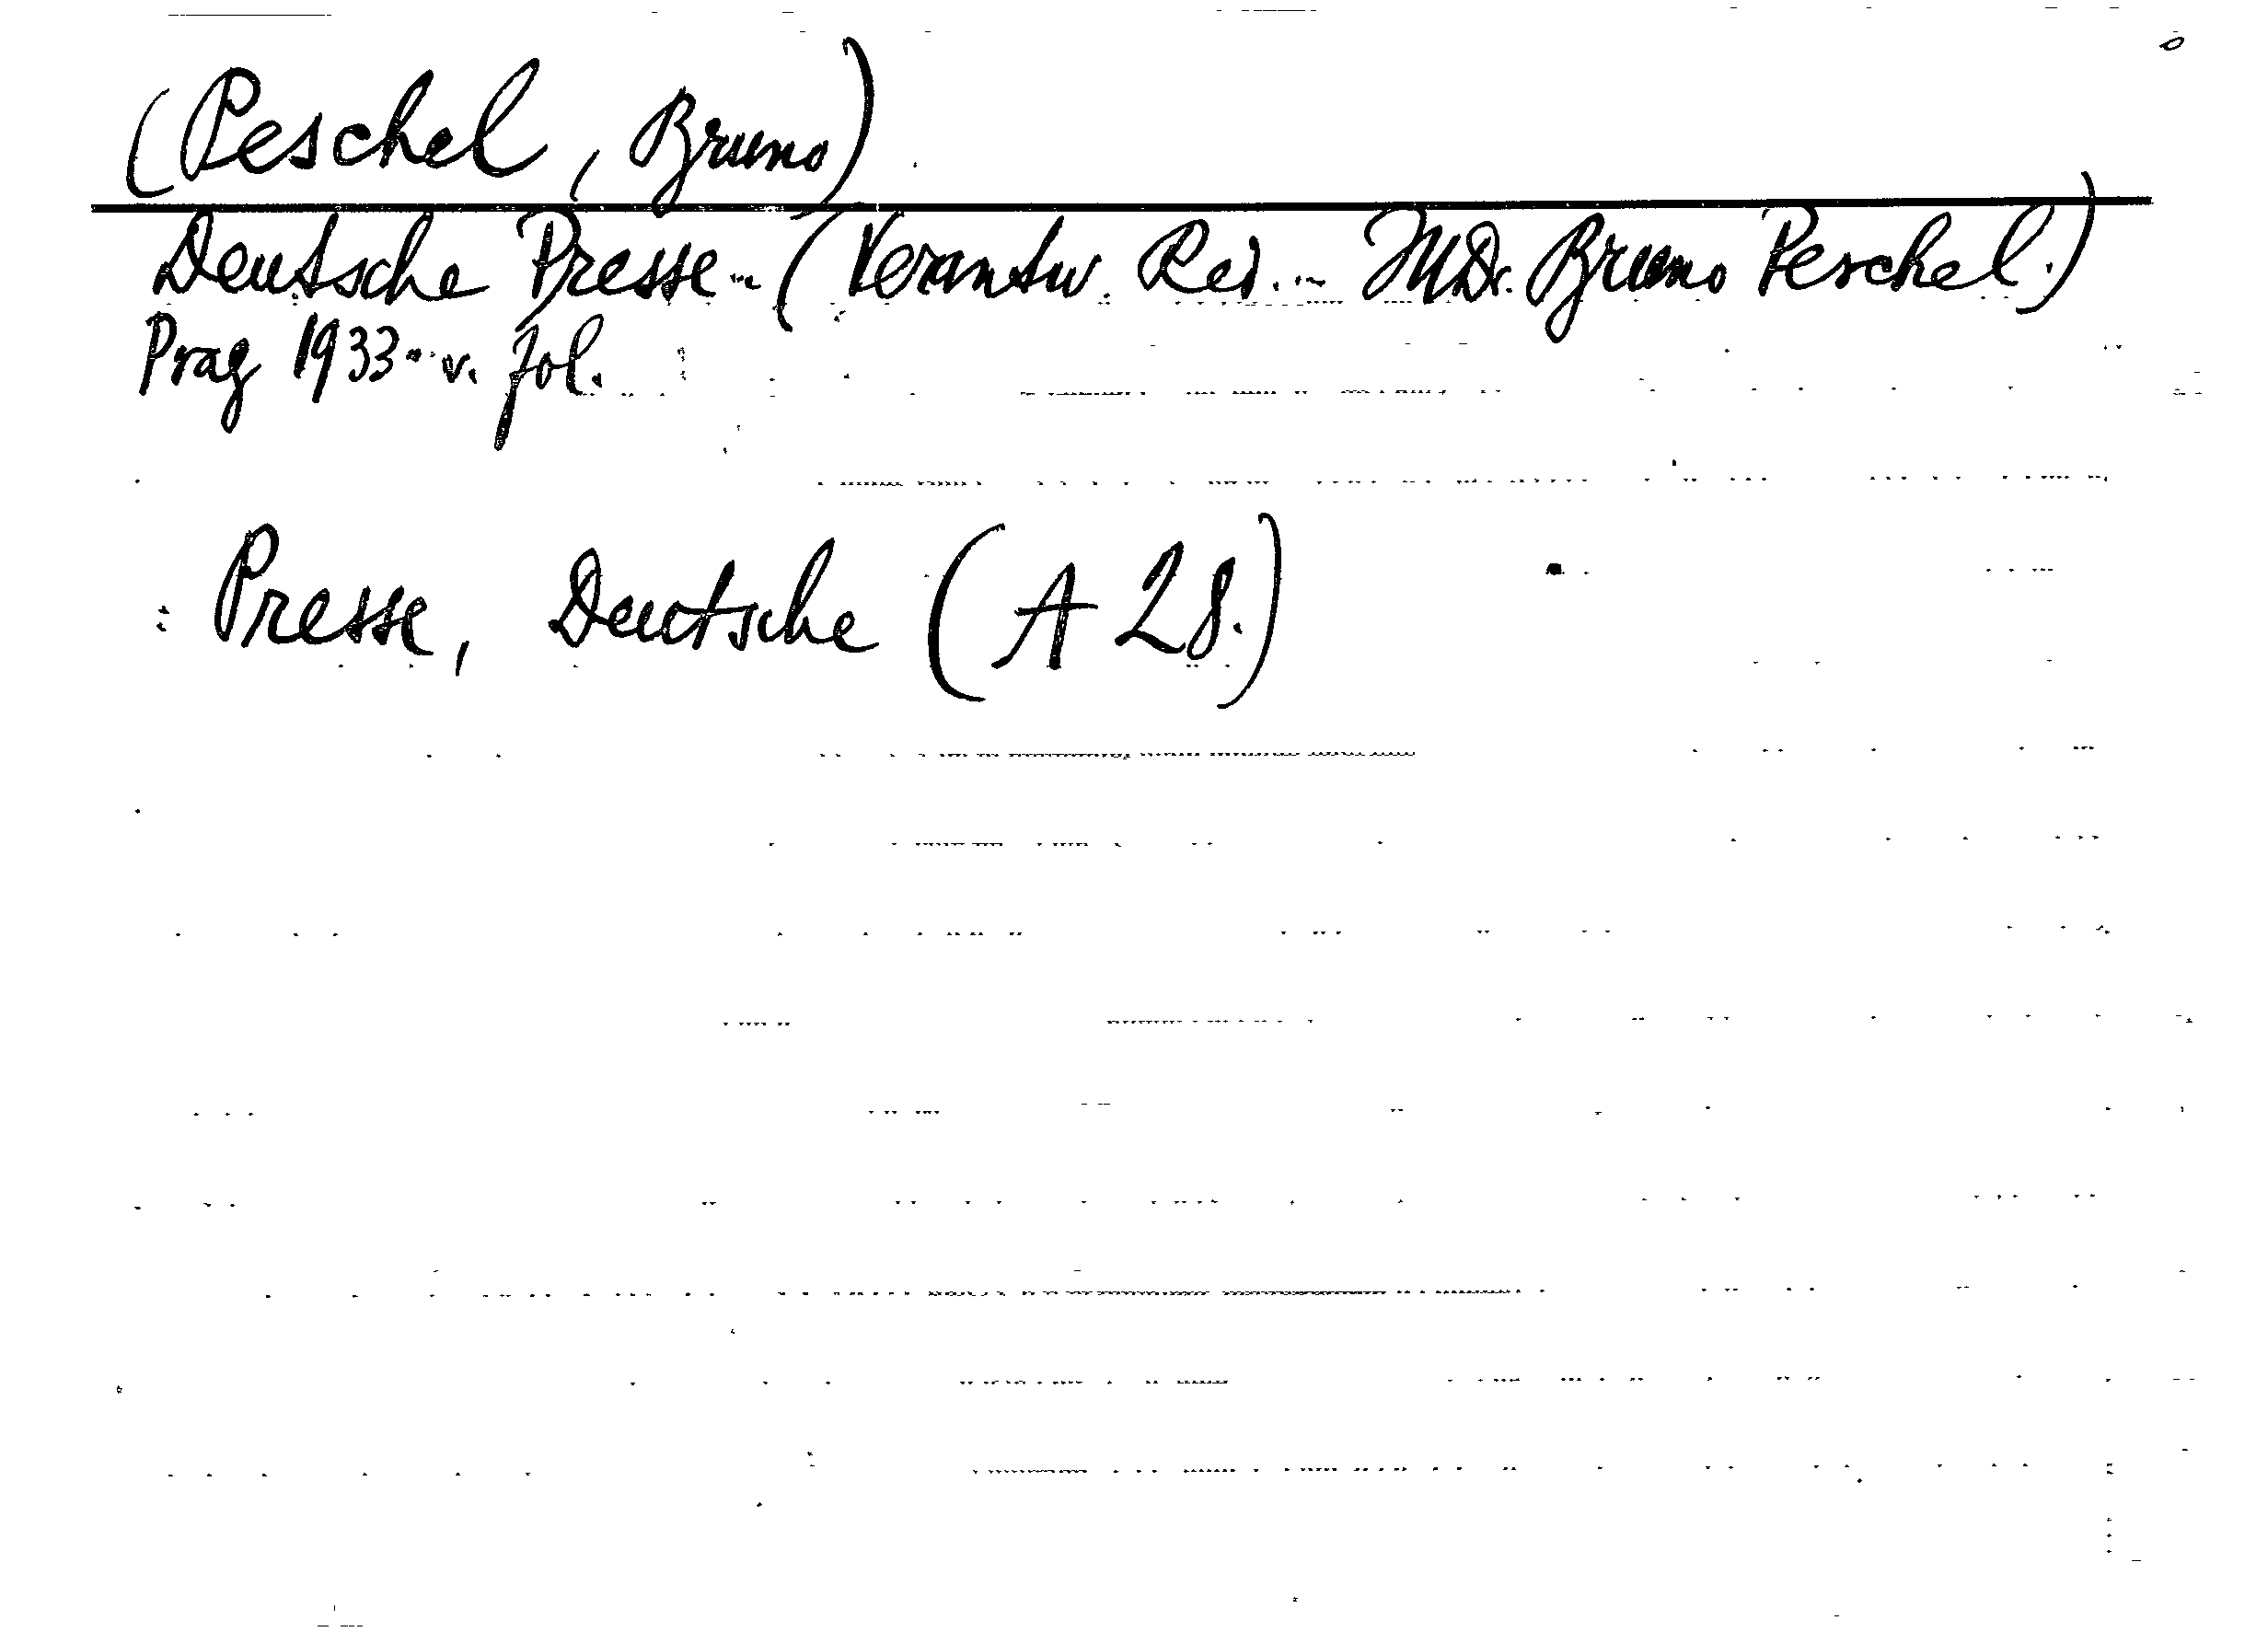 (Peschel, Bruno)
Deutsche Presse... (Verantw. Red... MDr. Bruno Peschel.)
Prag 1933... v. fol.
Presse, Deutsche (A 28.)